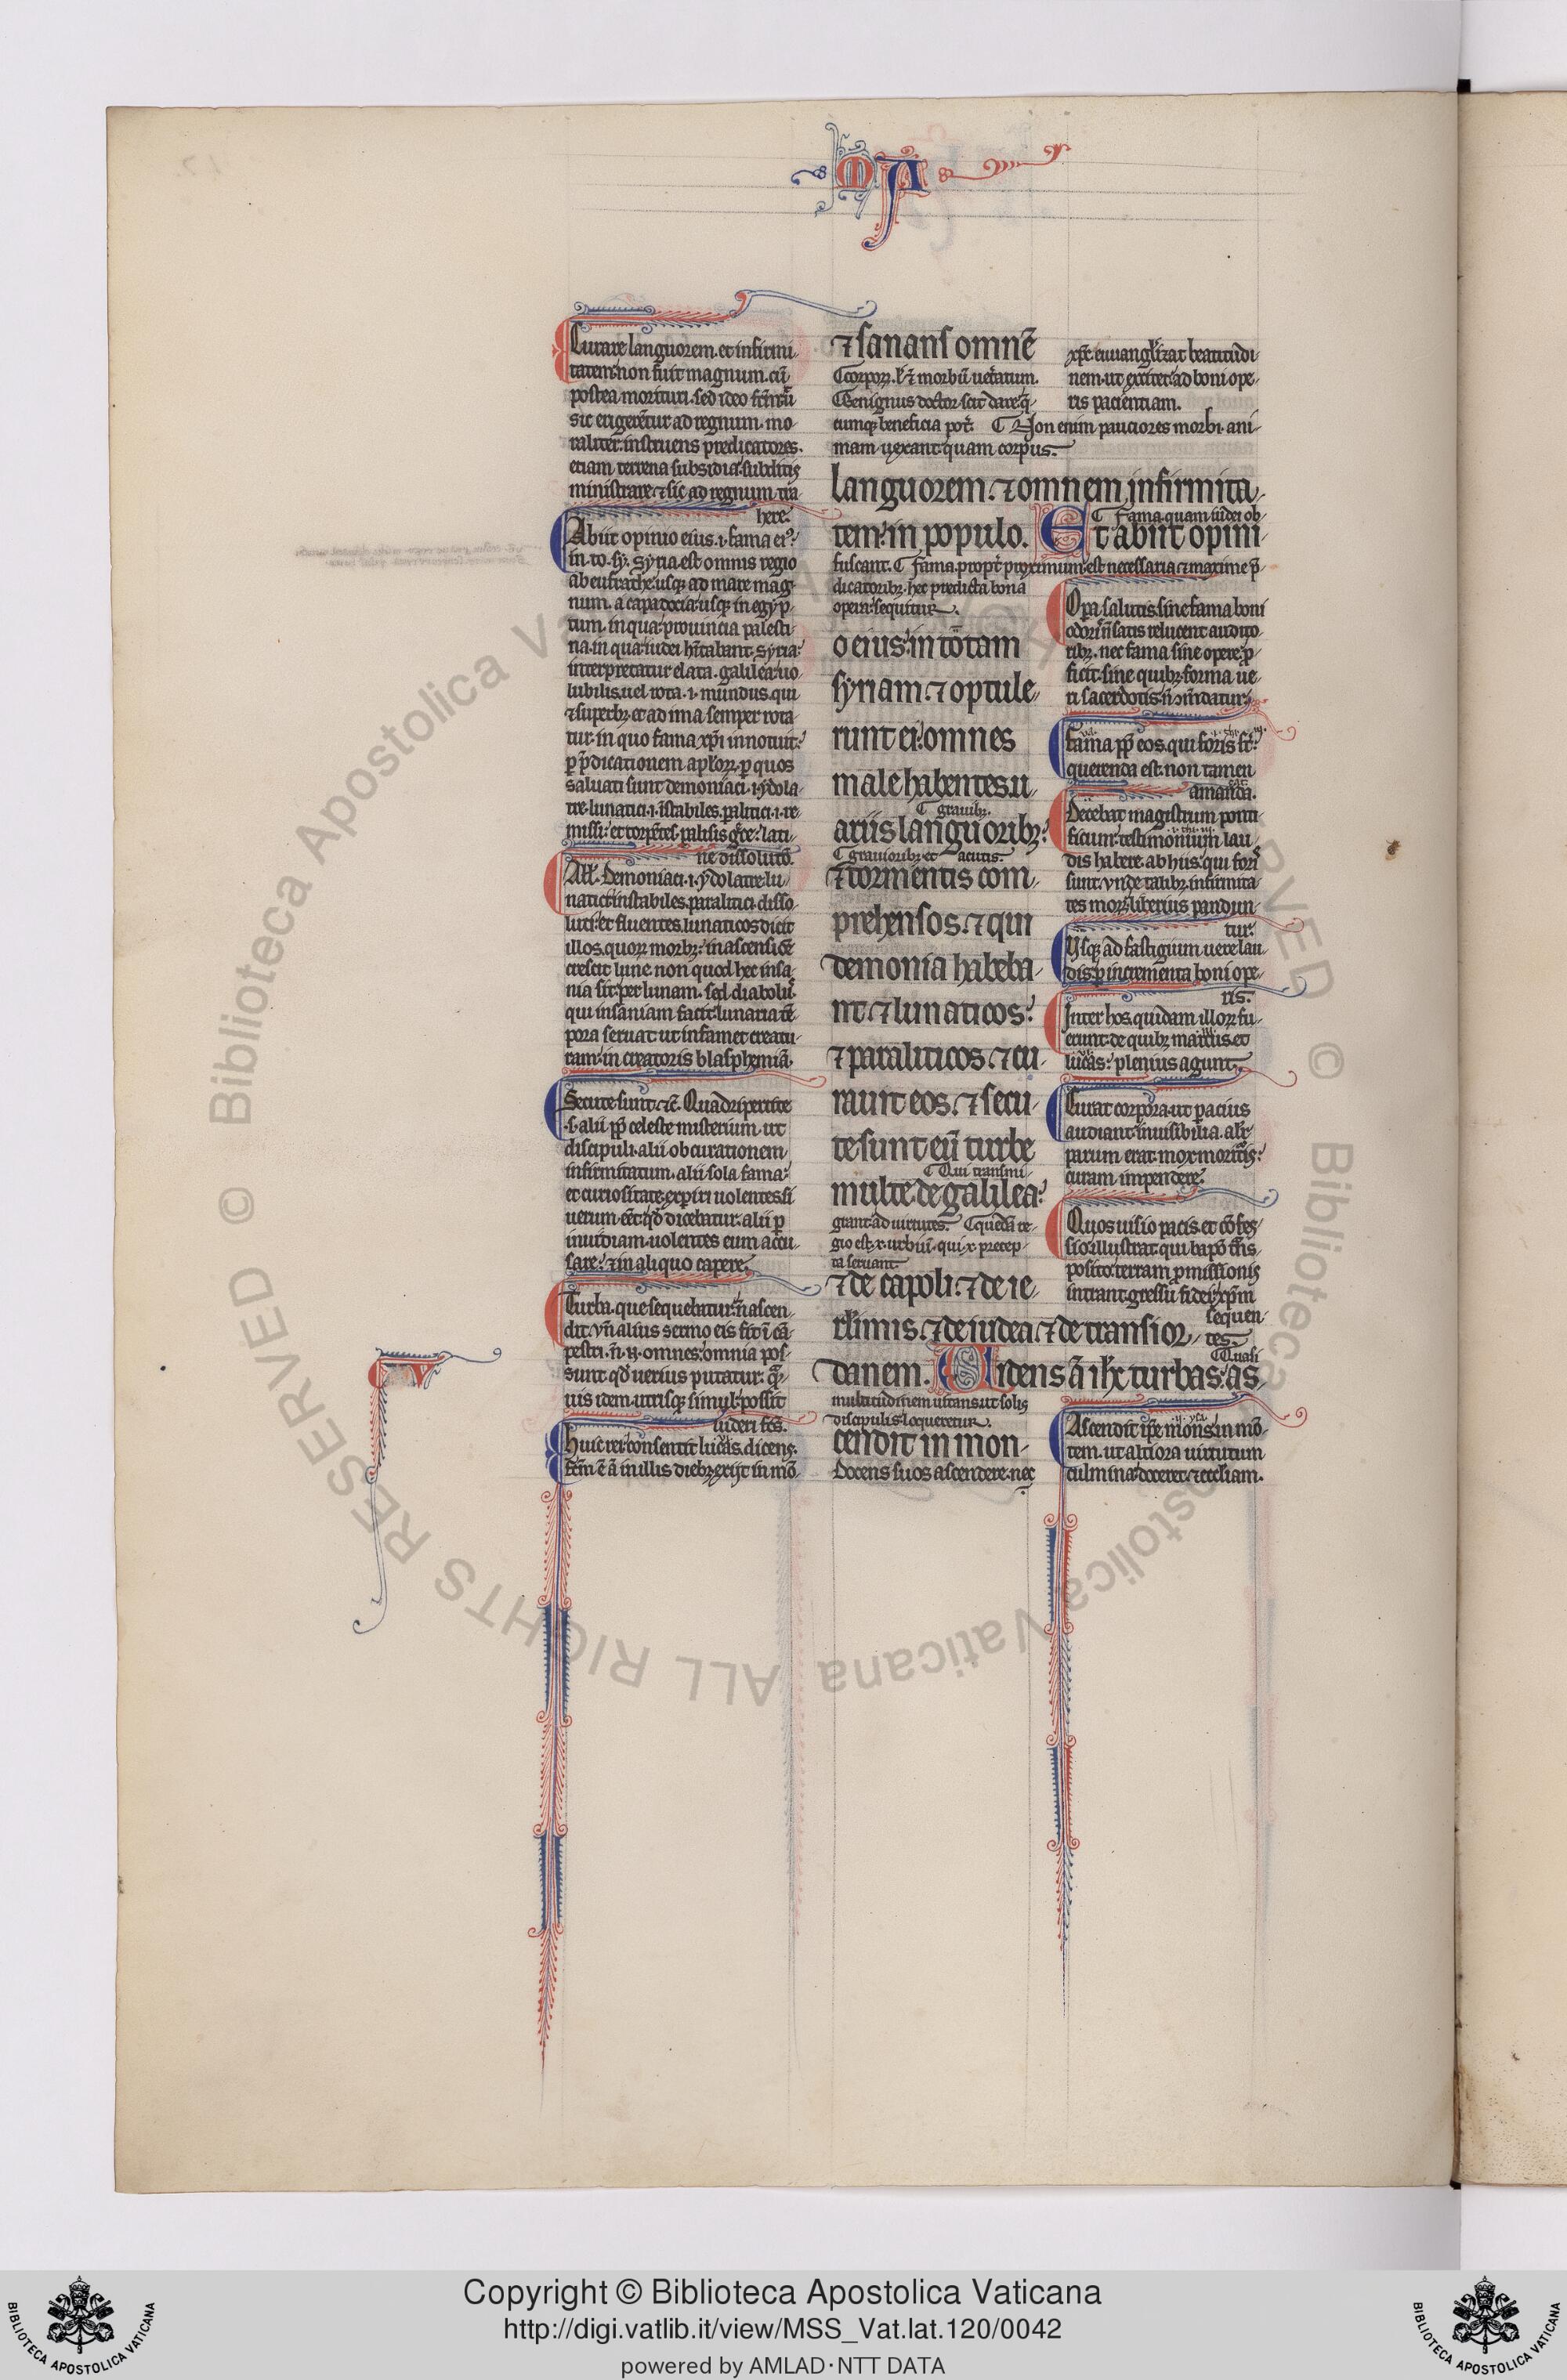 MA
Curare languorem. et infirmi-
tatem: non fuit magnum. cũ
postea morituri. sed ideo
sic erigerẽtur ad regnum. mo-
raliter: instruens predicatores.
etiam terrena subsidia: subditis
ministrare: ⁊ sic ad regnum tra-
here.
Abiit opinio eius .i. fama eiꝰ.
in to. sy. Syria est omnis regio
ab eufrathe: usqꝫ ad mare mag-
num. a capadocia: usqꝫ in egyp-
tum. in qua: prouincia palesti-
na. in qua: iudei hĩtabant. Syria:
interpretatur elata. galilea: uo-
lubilis. uel rota .i. mundus. qui
⁊ superbꝰ. et ad ima semper rota-
tur. in quo fama xp̃i innotuit:
ꝑ p̃dicationem apl̃oꝝ. ꝑ quos
saluati sunt demoniaci .i. ydola-
tre. lunatici .i. ĩstabiles. palitici .i. re-
missi: et torpẽtes. palisis gr̃ce: lati-
ne dissolutõ.
All. Demoniaci .i. ydolatre. lu-
natici: instabiles. paralitici: disso-
luti: et fluentes. lunaticos dicit
illos. quoꝝ morbꝰ: in ascensiõe
crescit lune. non quod hec insa-
nia sit: per lunam. sed diabolus
qui insaniam facit: lunaria tẽ-
pora seruat ut infamet creatu-
ram: in creatoris blasphemiã.
Secute sunt ⁊c̃. Quadripertite
.s. alii ꝓp̃ celeste misterium. ut
discipuli. alii ob curationem
infirmitatum. alii sola fama:
et curiositate. exꝑiri uolentes. si
uerum eẽt qd̓ dicebatur. alii ꝑ
inuidiam. uolentes eum accu-
sare: ⁊ in aliquo capere.
Turba. que sequebatur: ñ ascen-
dit. vñ alius sermo eis fit: ĩ cã-
pestri. ñ. omnes: omnia pos-
sunt. qd̓ uerius putatur. quã-
uis idem utrisqꝫ simul: possit
uideri fcũs.
Huic rei: consentit lucas. dicens.
fcm̃ ẽ ã in illis diebꝫ: exiit in mõ-
⁊ sanans omnẽ
corpoꝝ. morbũ uetatum.
Benignus doctor. scit dare: q̃-
cumqꝫ beneficia pot̃. Non enim pauciores morbi. ani-
mam. uexant: quam corpus.
languorem. ⁊ omnem infirmita-
tem: in populo. Et abiit opini-
Fama. quam iudei ob-
fuscant. fama. propt̃ proximum: est necessaria: ⁊ maxime p̃-
dicatoribꝫ. hec predicta bona
opera: sequitur.
o eius: in totam
syriam. ⁊ optule-
runt ei: omnes
male habentes. u-
grauibꝫ.
ariis languoribꝫ:
grauioribꝫ et acutis.
⁊ tormentis com-
prehensos. ⁊ qui
demonia habeba-
nt. ⁊ lunaticos:
⁊ paraliticos. ⁊ cu-
rauit eos. ⁊ secu-
te sunt eũ turbe
Qui transmi-
multe. de galilea:
grant ad uirtutes. quedã re-
gio est .x. urbiũ. qui .x. precep-
ta seruant.
⁊ de capoli. ⁊ de ie-
rl̃imis. ⁊ de iudea. ⁊ de transior-
danem. Uidens ã ih̃c turbas: as-
Quali
multitudinem uitans: ut solis
discipulis: loqueretur.
cendit in mon-
Docens suos ascendere. nec
xp̃c. euuangl̃izat beatitudi-
nem. ut excitet: ad boni ope-
ris pacientiam.
Opa salutis: sine fama boni
odoris: ñ satis relucent audito-
ribꝫ. nec fama sine opere: ꝓ-
ficit. sine quibꝫ: forma ue-
ri sacerdotis: ñ cõmẽdatur.
Fama: ꝓp̃ eos. qui foris sũt:
querenda est. non tamen
amanda.
Decebat magistrum ponti-
ficum: testimonium lau-
dis habere: ab hiis: qui foris
sunt. vnde talibꝫ: infirmita-
tes moꝝ: liberius pandun-
tur.
Usqꝫ ad fastigium uere lau-
dis: ꝑ incrementa boni ope-
ris.
Inter hos. quidam illoꝝ: fu-
erunt: de quibꝫ marcus: et
lucas: plenius agunt.
Curat corpora: ut pacius
audiant: inuisibilia. al̃r
parum erat: mox moritis:
curam impendere.
Quos uisio pacis. et cõfes-
sio: illustrat. qui bap̃õ
posito: terram ꝑmissionis
intrant. gressu fidei: xp̃m
sequen-
tes.
Ascendit ip̃e mons: in mõ-
tem. ut altiora uirtutum
culmina: doceret. ⁊ eccl̃iam.
V
© Biblioteca Apostolica Vaticana ALL RIGHTS RESERVED
Copyright © Biblioteca Apostolica Vaticana
http://digi.vatlib.it/view/MSS_Vat.lat.120/0042
powered by AMLAD·NTT DATA
BIBLIOTECA APOSTOLICA VATICANA
BIBLIOTECA APOSTOLICA VATICANA